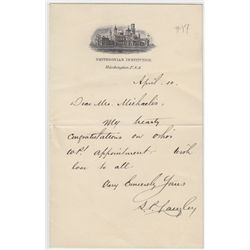 SMITHSONIAN INSTITUTION,
Washington, U.S.A.
April 10.
Dear Mrs. Michaelis
My hearty
congratulations on
appointment. With
love to all.
Very Sincerely Yours
S.P. Langley